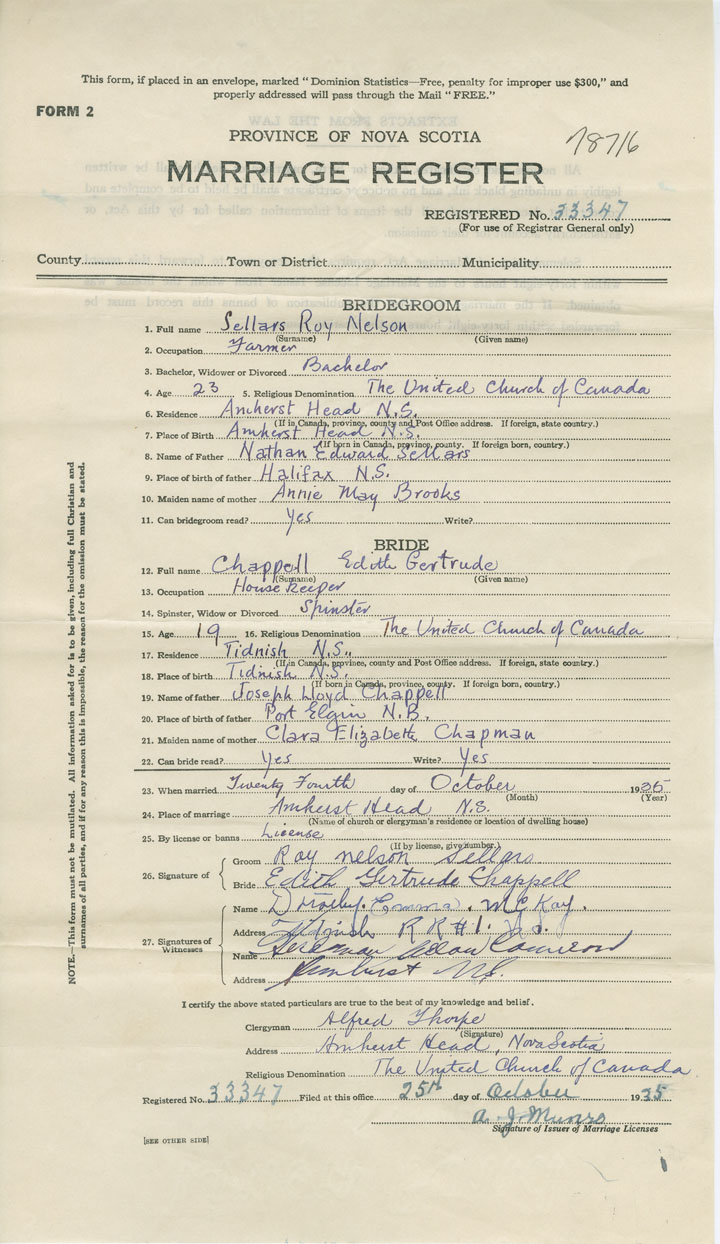 This form, if placed in an envelope, marked "Dominion Statistics—Free, penalty for improper use $300," and
properly addressed will pass through the Mail "FREE."
FORM 2
PROVINCE OF NOVA SCOTIA
78716
MARRIAGE REGISTER
REGISTERED No. 33347
(For use of Registrar General only)
County Town or District Municipality
BRIDEGROOM
1. Full name Sellars Roy Nelson
(Surname) (Given name)
2. Occupation Farmer
3. Bachelor, Widower or Divorced Bachelor
4. Age 23 5. Religious Denomination The United Church of Canada
6. Residence Amherst Head N.S.
(If in Canada, province, county and Post Office address. If foreign, state country.)
7. Place of Birth Amherst Head N.S.
(If born in Canada, province, county. If foreign born, country.)
8. Name of Father Nathan Edward Sellars
9. Place of birth of father Halifax N.S.
10. Maiden name of mother Annie May Brooks
11. Can bridegroom read? Yes Write?
BRIDE
12. Full name Chappell Edith Gertrude
(Surname) (Given name)
13. Occupation House keeper
14. Spinster, Widow or Divorced Spinster
15. Age 19 16. Religious Denomination The United Church of Canada
17. Residence Tidnish N.S.
(If in Canada, province, county and Post Office address. If foreign, state country.)
18. Place of Birth Tidnish N.S.
(If born in Canada, province, county. If foreign born, country.)
19. Name of father Joseph Lloyd Chappell
20. Place of birth of father Port Elgin N.B.
21. Maiden name of mother Clara Elizabeth Chapman
22. Can bride read? Yes Write? Yes
23. When married Twenty Fourth day of October 1935
(Month) (Year)
24. Place of marriage Amherst Head N.S.
(Name of church or clergyman's residence or location of dwelling house)
25. By license or banns License
(If by license, give number.)
26. Signature of
Groom Roy Nelson Sellars
Bride Edith Gertrude Chappell
27. Signatures of Witnesses
Name Dorothy Emma McKay.
Address Tidnish R R #1. N.S.
Name Cameron
Address Amherst N.S.
I certify the above stated particulars are true to the best of my knowledge and belief.
Clergyman Alfred Thorpe
(Signature)
Address Amherst Head, Nova Scotia
Religious Denomination The United Church of Canada
Registered No. 33347 Filed at this office 25th day of October 1935
A. J. Munro
Signature of Issuer of Marriage Licenses
[SEE OTHER SIDE]
NOTE.—This form must not be mutilated. All information asked for is to be given, including full Christian and
surnames of all parties, and if for any reason this is impossible, the reason for the omission must be stated.